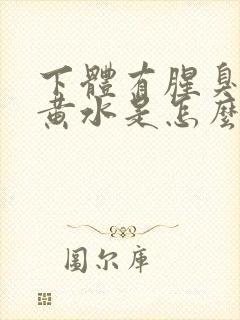 下體有腥臭
黃水是怎麼
圖尔库